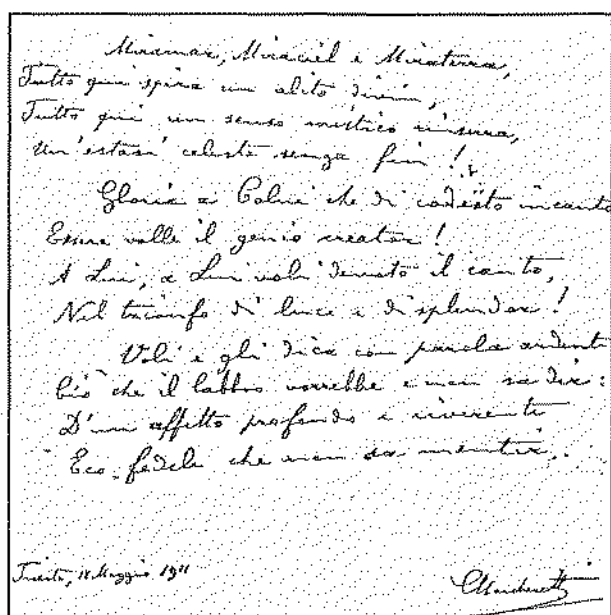 Miramar, Miraciel e Miraterra,
Tutto qui spira un alito divin,
Tutto qui un senso mistico rinserra,
Un'estasi celeste senza fin!
Gloria a Colui che di codesto incanto
Essere volle il genio creator!
A Lui, a Lui voli devoto il canto,
Nel trionfo di luce e di splendor!
Voli e gli dica con parola ardente
Ciò che il labbro vorrebbe e non sa dir:
D'un affetto profondo e riverente
Eco fedele che non sa mentir.
Trieste, 18 Maggio 1911
CMarchesetti